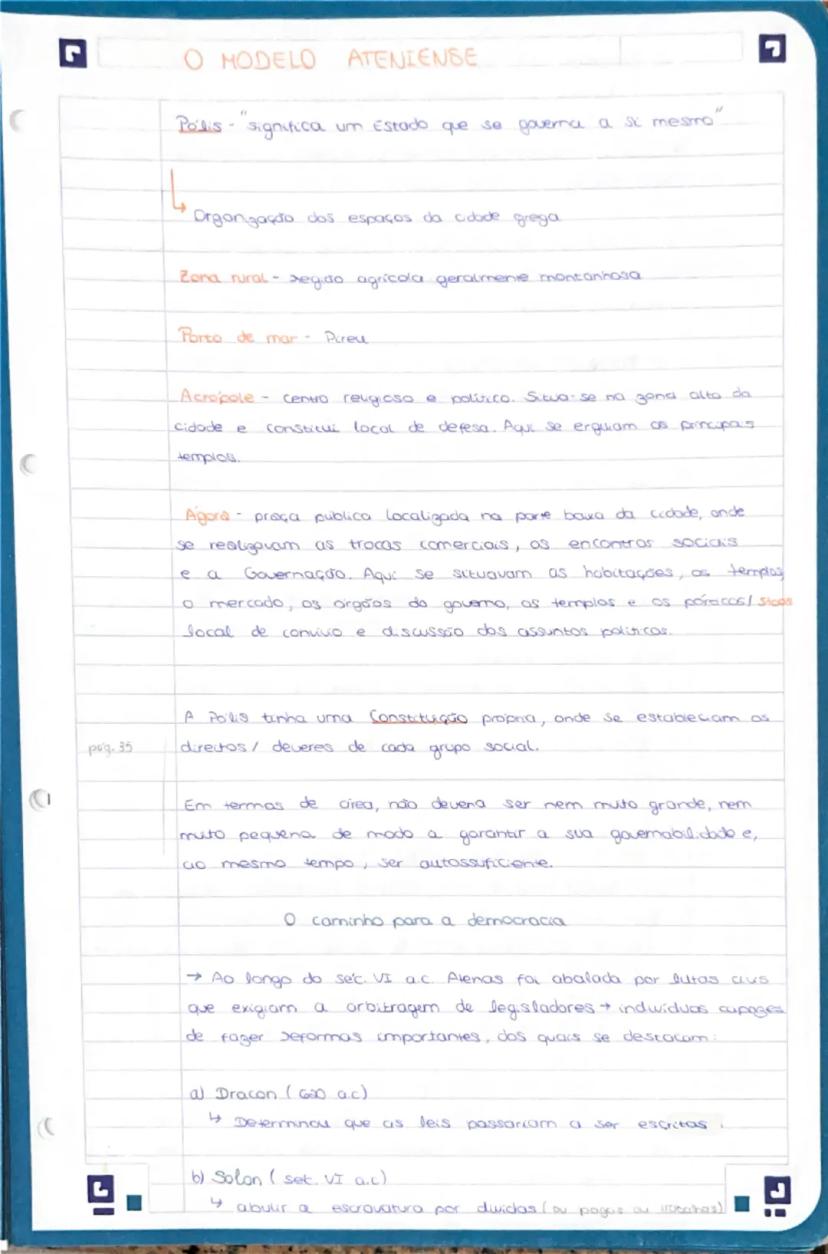 O MODELO ATENIENSE
Pólis - "significa um Estado que se governa a si mesmo"
↳ Organização dos espaços da cidade grega
Zona rural - região agrícola geralmente montanhosa
Porto de mar - Pireu
Acrópole - centro religioso e político. Situa-se na zona alta da
cidade e constitui local de defesa. Aqui se erguiam os principais
templos.
Ágora - praça pública localizada na parte baixa da cidade, onde
se realizavam as trocas comerciais, os encontros sociais
e a Governação. Aqui se situavam as habitações, os templos
o mercado, os orgãos do governo, os templos e os pórticos/ stoas
local de convivio e discussão dos assuntos políticos.
A Pólis tinha uma Constituição própria, onde se estabeleciam os
pág. 35 direitos/ deveres de cada grupo social.
Em termos de área, não deveria ser nem muito grande, nem
muito pequena de modo a garantir a sua governabilidade e,
ao mesmo tempo, ser autossuficiente.
O caminho para a democracia
→ Ao longo do séc. VI a.c. Atenas foi abalada por lutas civis
que exigiam a arbitragem de legisladores → indivíduos capazes
de fazer reformas importantes, dos quais se destacam:
a) Dracon ( 620 a.c)
↳ Determinou que as leis passariam a ser escritas.
b) Solon ( sek. VI a.c)
↳ abulir a escravatura por dividas ( ou pagas ou trabalhas)